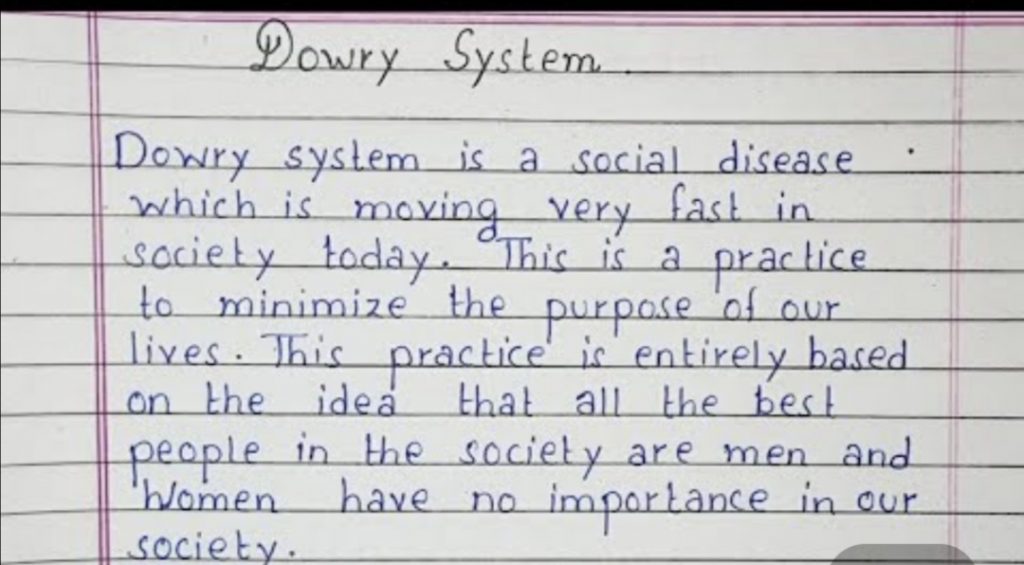 Dowry System.
Dowry system is a social disease
which is moving very fast in
society today. This is a practice
to minimize the purpose of our
lives. This practice is entirely based
on the idea that all the best
people in the society are men and
Women have no importance in our
society.